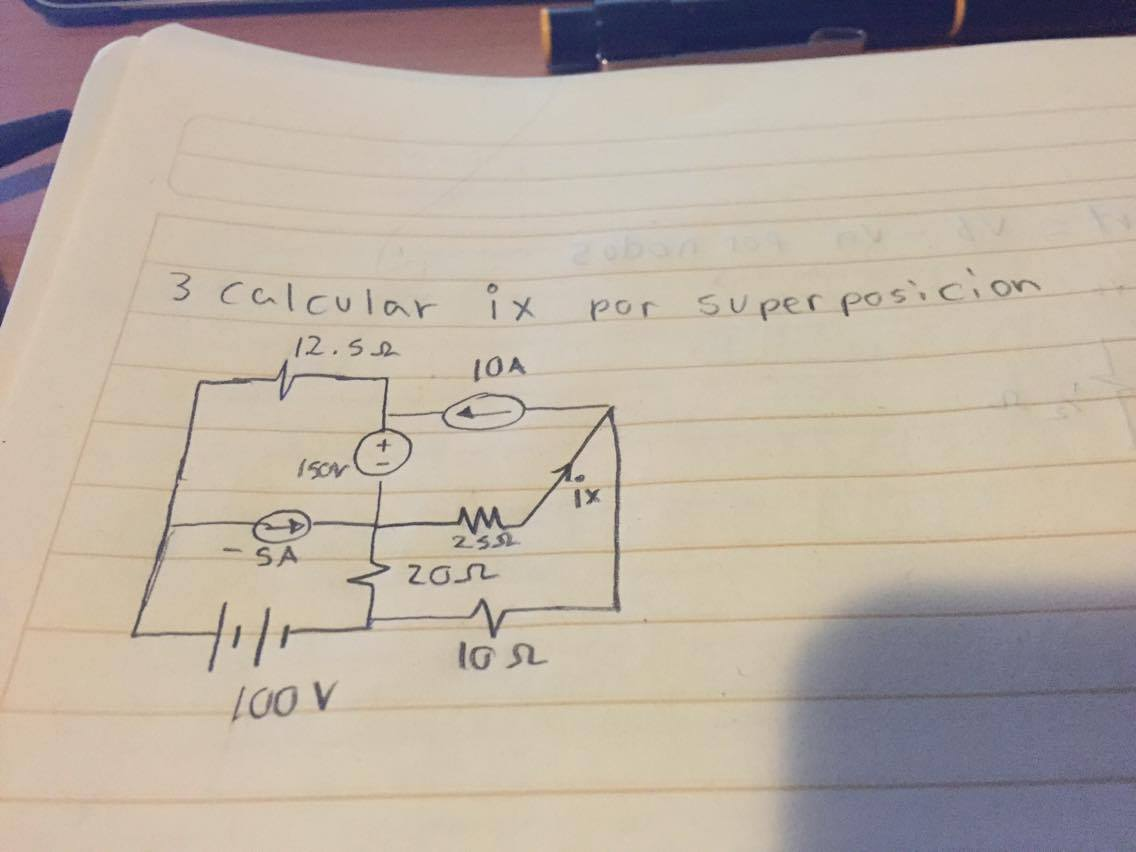 3 Calcular ix por superposicion
12.5Ω
10A
+
-
150V
ix
25Ω
-5A
20Ω
10Ω
100V